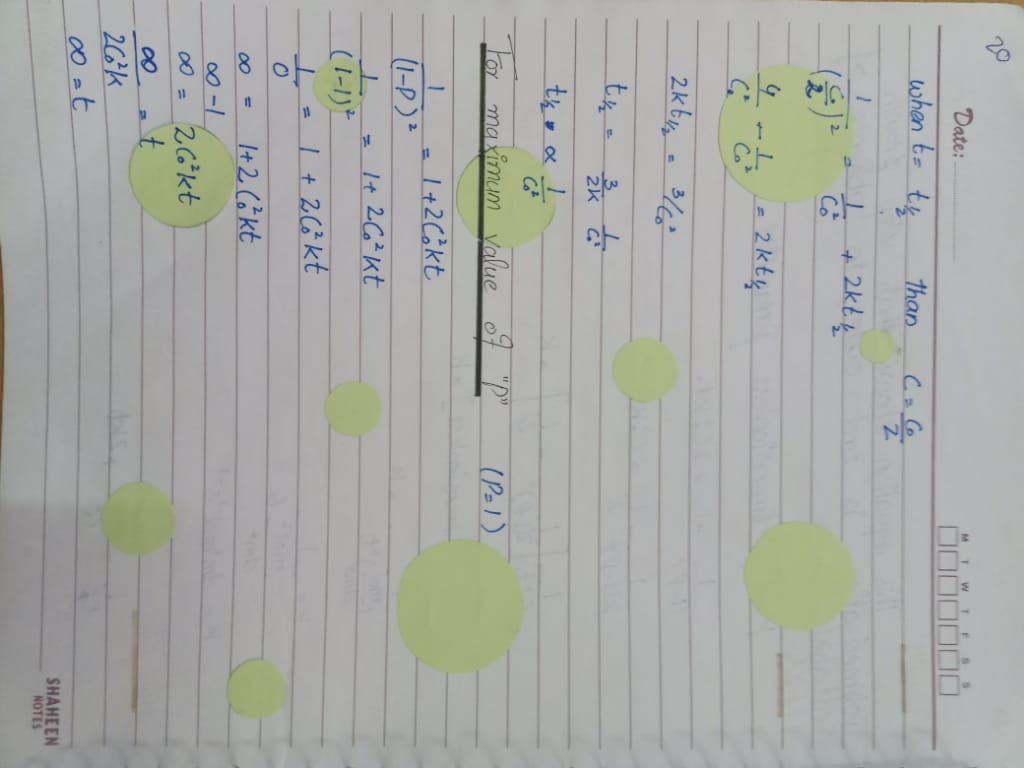 20
Date:
M T W T F S S
when t = t½ than C = C₀/2
1/(C₀/2)² = 1/C₀² + 2kt½
4/C₀² - 1/C₀² = 2kt½
2kt½ = 3/C₀²
t½ = 3/2K 1/C₀²
t½ ∝ 1/C₀²
For maximum value of "P" (P=1)
1/(1-P)² = 1+2C₀²kt
1/(1-1)² = 1+2C₀²kt
1/0 = 1+2C₀²kt
∞ = 1+2C₀²kt
∞-1
∞ = 2C₀²kt
∞/2C₀²k = t
∞ = t
SHAHEEN
NOTES